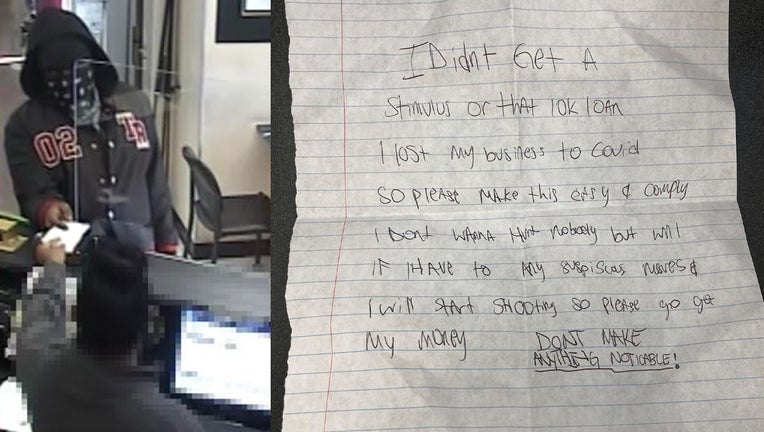 02 TR
I Didnt Get A
Stimulus or that 10k loan
I lost My business to Covid
SO please MAKE this easy & comply
I Dont WANNA Hurt nobody but will
IF I HAVE to Any suspiscus moves &
I will start SHOOting so please go get
My Money DONT MAKE
ANYTHING NOTICABLE!